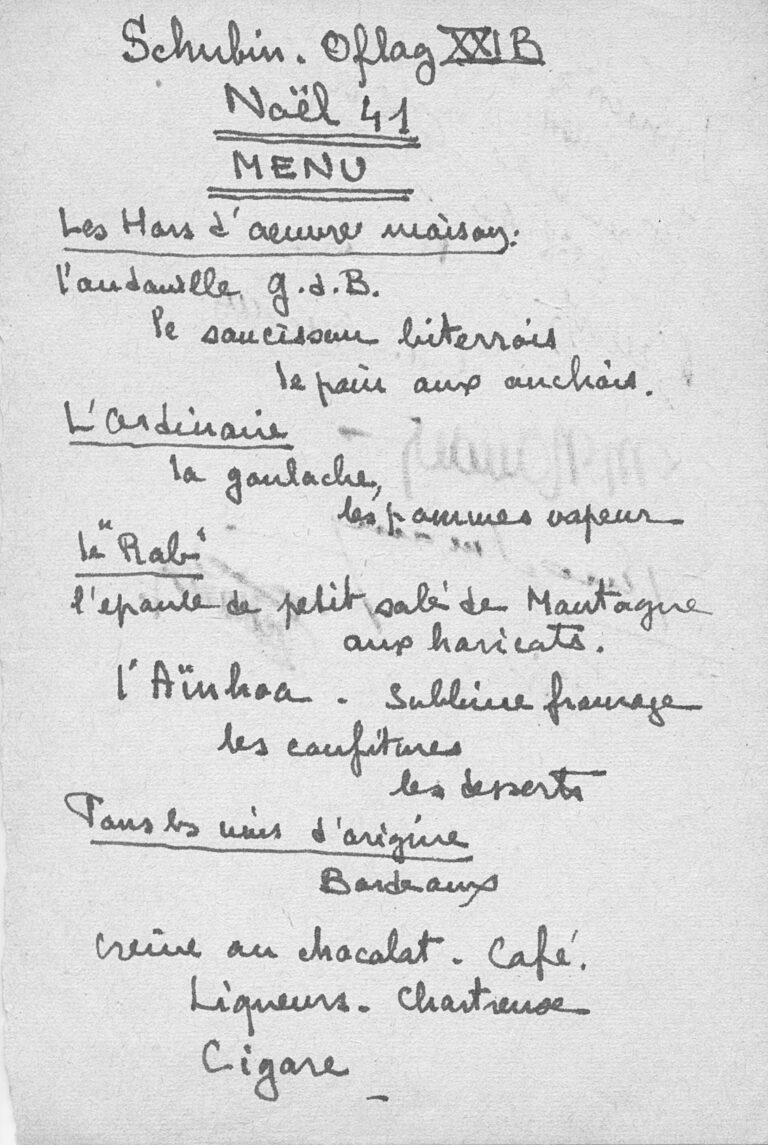 Schubin. Oflag XXI B
Noël 41
MENU
Les Hors d'oeuvre maison:
l'andouille G.d.B.
le saucisson biterrois
le pain aux anchois.
L'Ordinaire
la goulache,
les pommes vapeur
le "Rab"
l'epaule de petit salé de Montagne
aux haricots.
l'Aïnhoa - Sublime fromage
les confitures
les desserts
Tous les vins d'origine
Bordeaux
creme au chocolat - Café.
Liqueurs - Chartreuse
Cigare